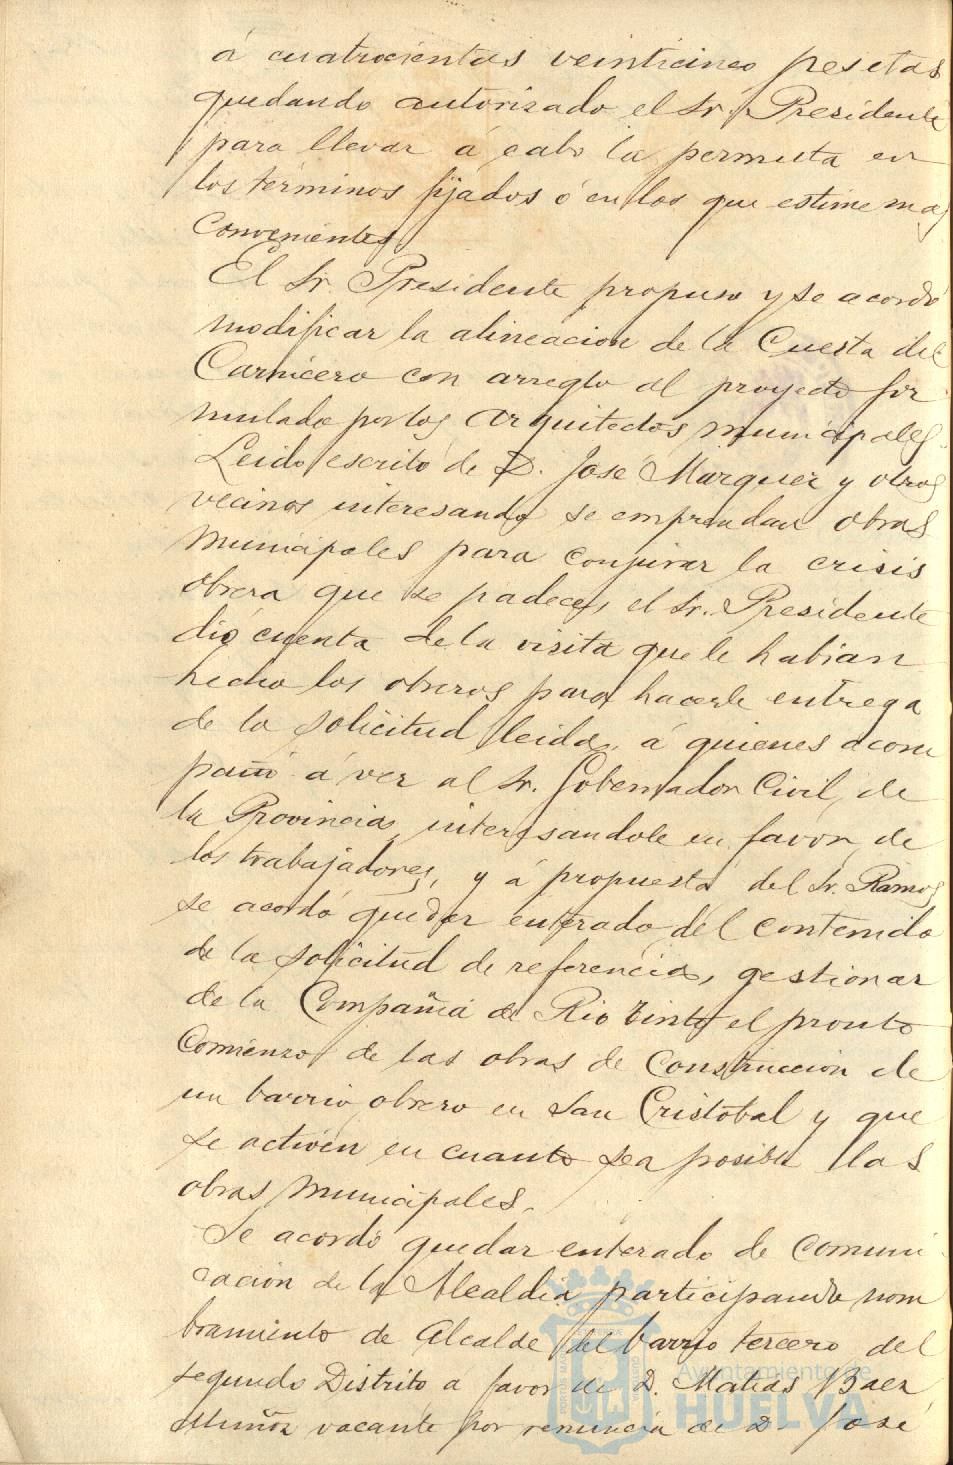 á cuatrocientas veinticinco pesetas
quedando autorizado el Sr. Presidente
para llevar á cabo la permuta en
los términos fijados ó en los que estime mas
convenientes.
El Sr. Presidente propuso y se acordó
modificar la alineacion de la Cuesta del
Carnicero con arreglo al proyecto for
mulado por los Arquitectos municipales.
Leido escrito de D. José Marquez y otros
vecinos interesando se emprendan obras
municipales para conjurar la crisis
obrera que se padece, el Sr. Presidente
dió cuenta de la visita que le habian
hecho los obreros para hacerle entrega
de la solicitud leida, á quienes acom
pañó á ver al Sr. Gobernador Civil, de
la Provincia, interesandole en favor de
los trabajadores, y á propuesta del Sr. Ramos
se acordó quedar enterado del contenido
de la solicitud de referencia, gestionar
de la Compañia de Rio Tinto el pronto
comienzo de las obras de construccion de
un barrio obrero en San Cristobal y que
se activen en cuanto sea posible las
obras municipales.
Se acordó quedar enterado de comuni
cación de la Alcaldia participando nom
bramiento de Alcalde del barrio tercero del
segundo Distrito a favor de D. Matias Baez
Muñoz vacante por renuncia de D. José
Ayuntamiento de
HUELVA